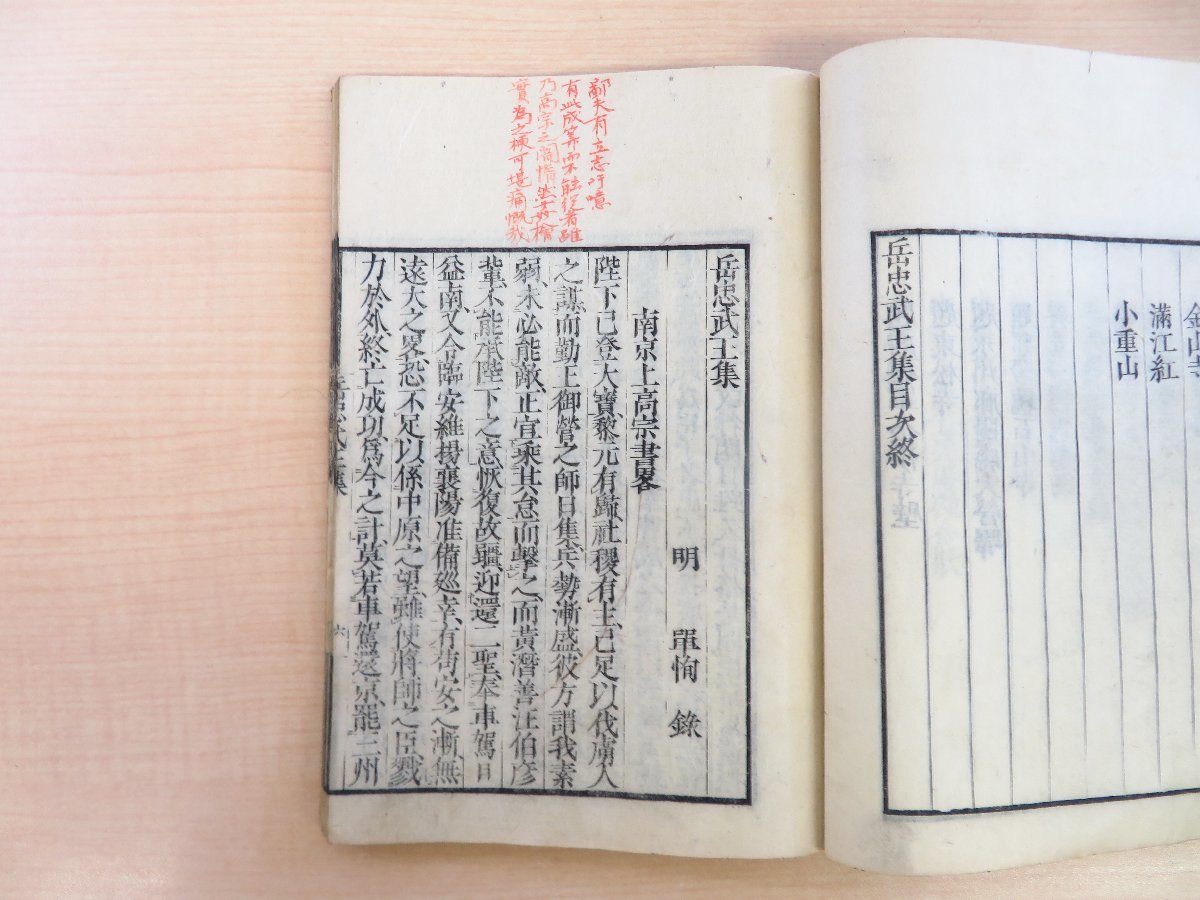 金山寺
滿江紅
小重山
岳忠武王集目次終
鄙夫有立志吁噫
有此成算而不能從者雖
乃高宗之闇惰然秦檜
實為之梗可堪痛慨哉
岳忠武王集
明 單恂 錄
南京上高宗書畧
陛下已登大寶黎元有歸社稷有主已足以伐虜人
之謀而勤王御營之師日集兵勢漸盛彼方謂我素
弱未必能敵正宜乘其怠而擊之而黃潛善汪伯彥
輩不能承陛下之意恢復故疆迎還二聖奉車駕日
益南又令臨安維揚襄陽准備巡幸有苟安之漸無
遠大之畧恐不足以係中原之望雖使將帥之臣戮
力於外終亡成功爲今之計莫若車駕還京罷三州
岳忠武王集
六